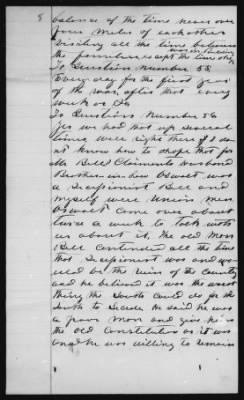 8
balance of the time never over
four miles of each other
visiting all the time between
the families except the time she was in Dallas
To Question Number 55
Every day for the first year
of the war after that every
week or so
To Question Number 56
Yes we had not up several
times were right there I do
nt know how to shape that for
Mr Bell Claimants Husband
Brother in law Oswalt was
a Secessionist Bell and
myself were Union men
Oswalt Come over about
twice a week to talk with
us about it, the old Man
Bell Contended all the time
that Secessionist was and wo-
uld be the ruin of the Country
and he believed it was the worst
thing the South could do for the
South to Secede He said he was
a poor man and give him
the Old Constitution as it was
and he was willing to remain